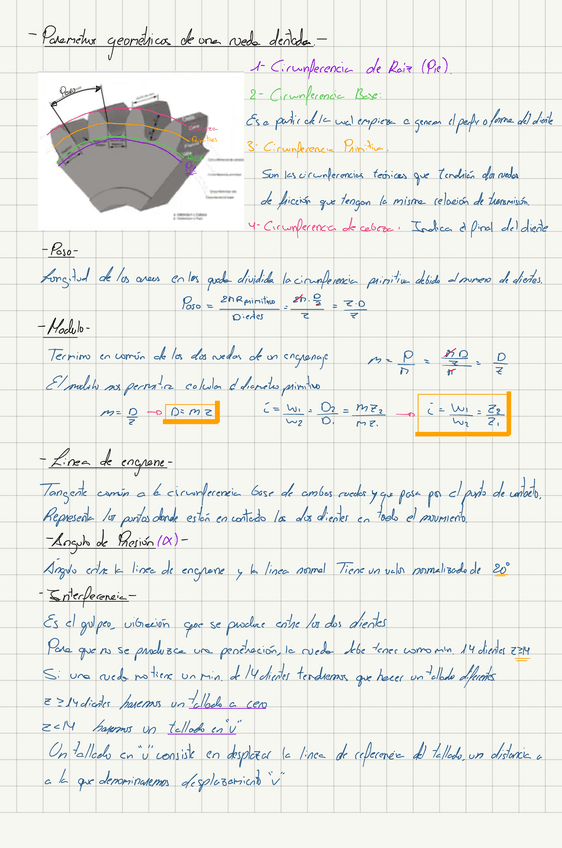 - Parametros geométricos de una rueda dentada.-
1- Circunferencia de Raiz (Pie).
2- Circunferencia Base:
Es a partir de la cual empieza a generar el perfil o forma del diente
3- Circunferencia Primitiva.
Son las circunferencias teóricas que tendrían dos ruedas
de fricción que tengan la misma relación de transmisión.
4- Circunferencia de cabeza. Indica el final del diente
Paso
-Paso-
Longitud de los arcos en los queda dividida la circunferencia primitiva debido al numero de dientes.
Paso = 2πR primitivo / Dientes = 2π · D/2 / z = π · D / z
-Modulo-
Termino en común de las dos ruedas de un engranaje
m = P/π = (πD/z)/π = D/z
El modulo nos permitira calcular el diametro primitivo
m = D/z → D = m z
i = w1/w2 = D2/D1 = m z2/m z1 → i = w1/w2 = z2/z1
-Linea de engrane-
Tangente común a la circunferencia base de ambas ruedas y que pasa por el punto de contacto.
Representa los puntos donde están en contacto los dos dientes en todo el movimiento.
-Angulo de Presión (α)-
Ángulo entre la linea de engrane y la linea normal Tiene un valor normalizado de 20°
-Interferencia-
Es el golpeo, vibración que se produce entre los dos dientes
Para que no se produzca una penetración, la rueda debe tener como min. 14 dientes z≥14
Si una rueda no tiene un min. de 14 dientes tendremos que hacer un tallado diferentes
z ≥ 14 dientes haremos un tallado a cero
z < 14 haremos un tallado en "v"
Un tallado en "v" consiste en desplazar la linea de referencia del tallado, un distancia a
a la que denominaremos desplazamiento "v"